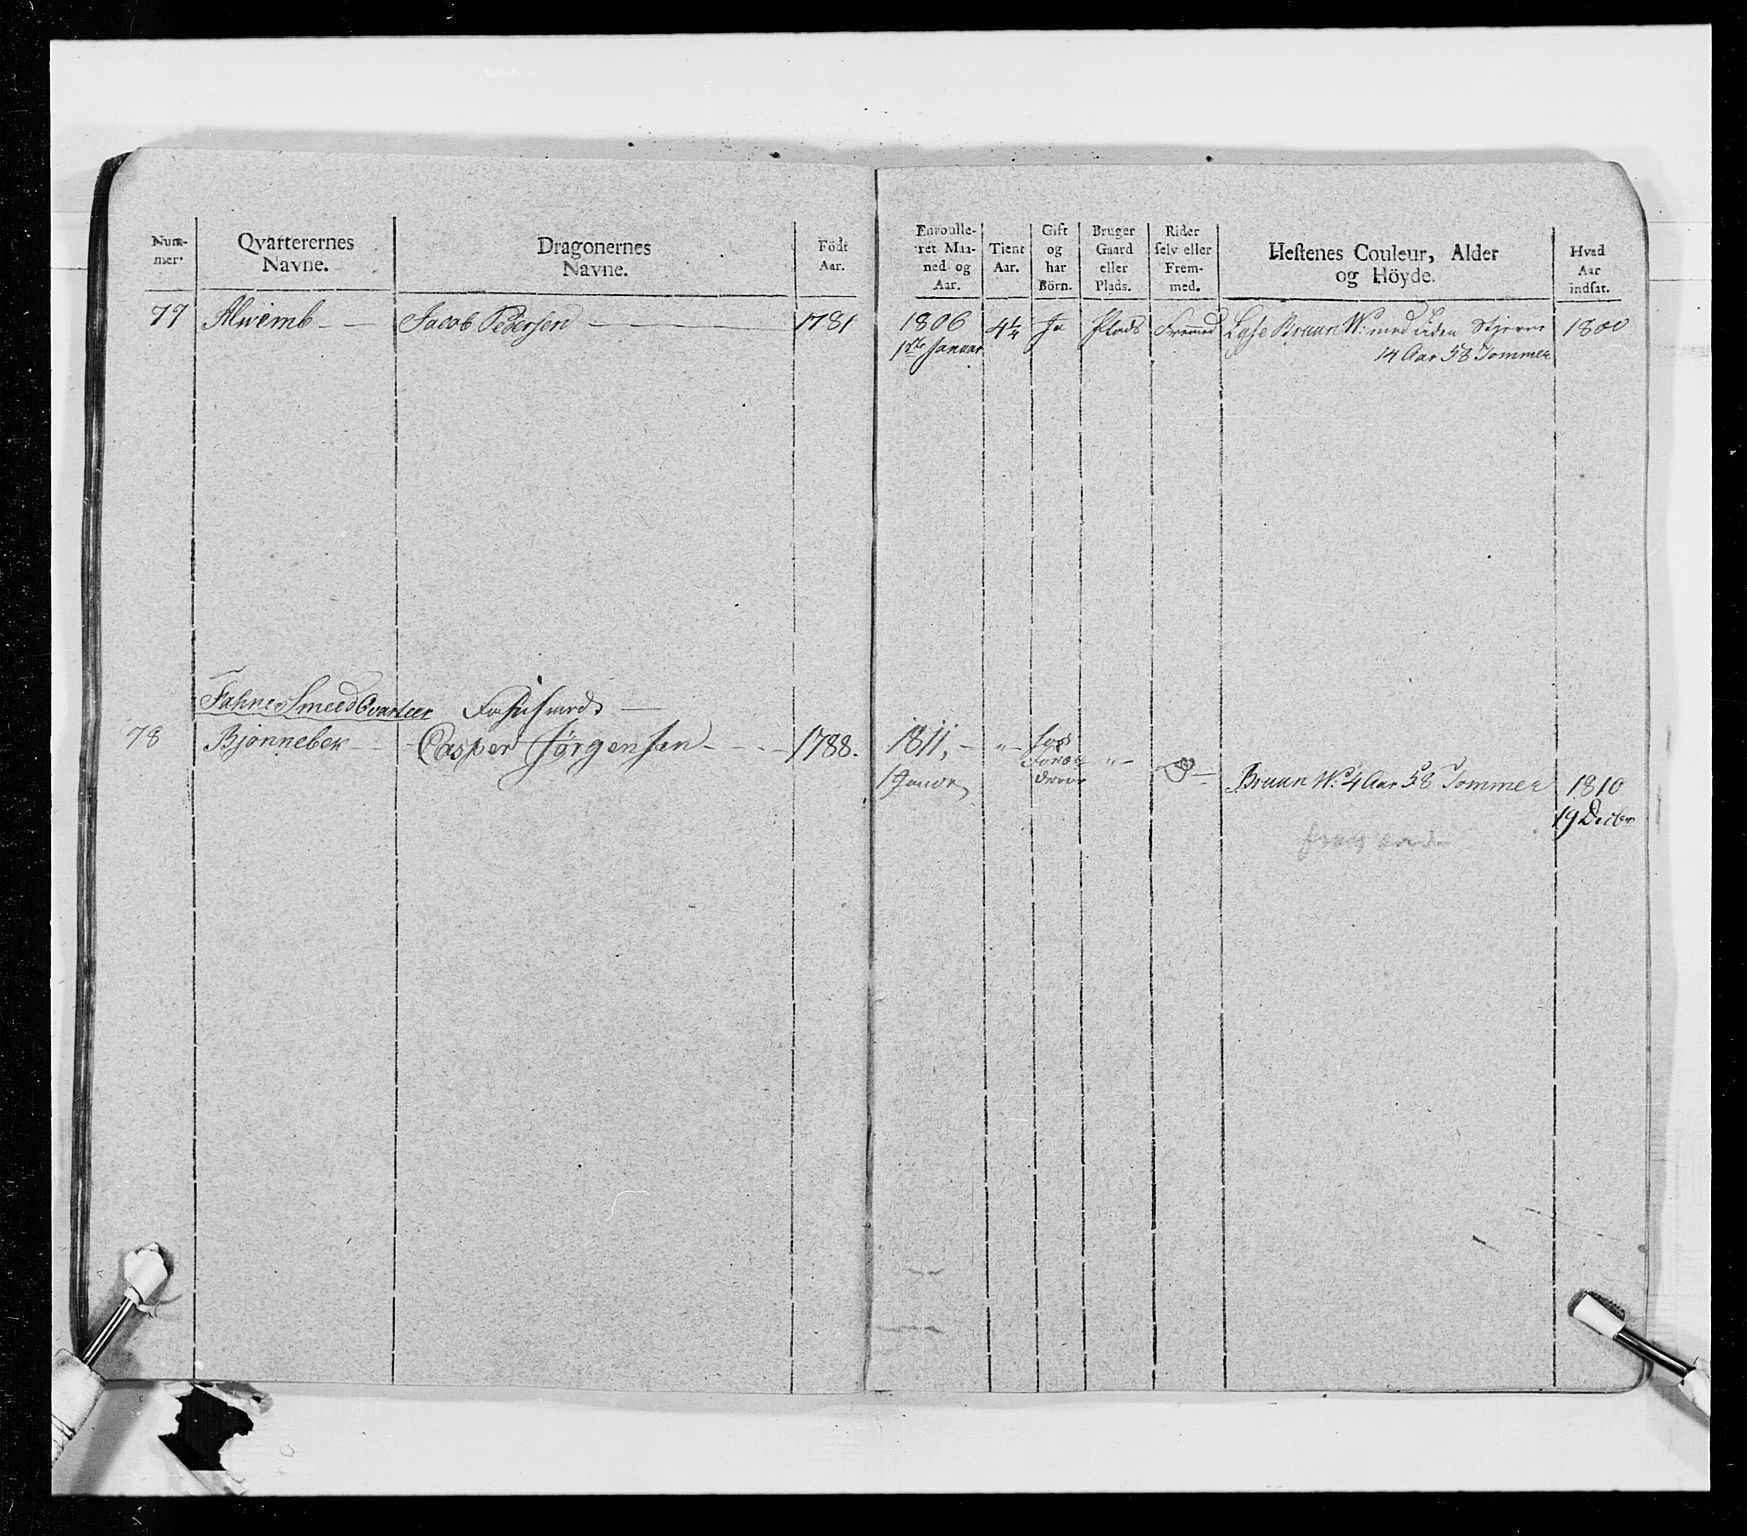 Num-
mer.
Qvarterernes
Navne.
Dragonernes
Navne.
Födt
Aar.
Enroulle-
ret Maa-
ned og
Aar.
Tient
Aar.
Gift
og
har
Börn.
Bruger
Gaard
eller
Plads.
Rider
selv eller
Frem-
med.
Hestenes Couleur, Alder
og Höyde.
Hvad
Aar
indsat.
77 Alwimb Jacob Pedersen 1781 1806 4¼ Ja Plads Fremed Lyse Bruun W: med uden Stjerne 1800
1ste Januar 14 Aar 58 Tommer
Fahne Smeed Qvarteer
78 Bjonnebek Casper Jörgensen 1788. 1811,
1 Janor
Bruun W: 4 Aar 58 Tommer 1810
19 Decbr